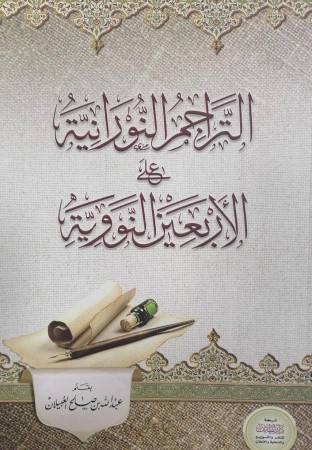 التَّرَاجِمُ النُّورَانِيَّة
عَلَى
الأَرْبَعِينَ النَّوَوِيَّة
بقلم
عبدالله بن صالح العبيلان